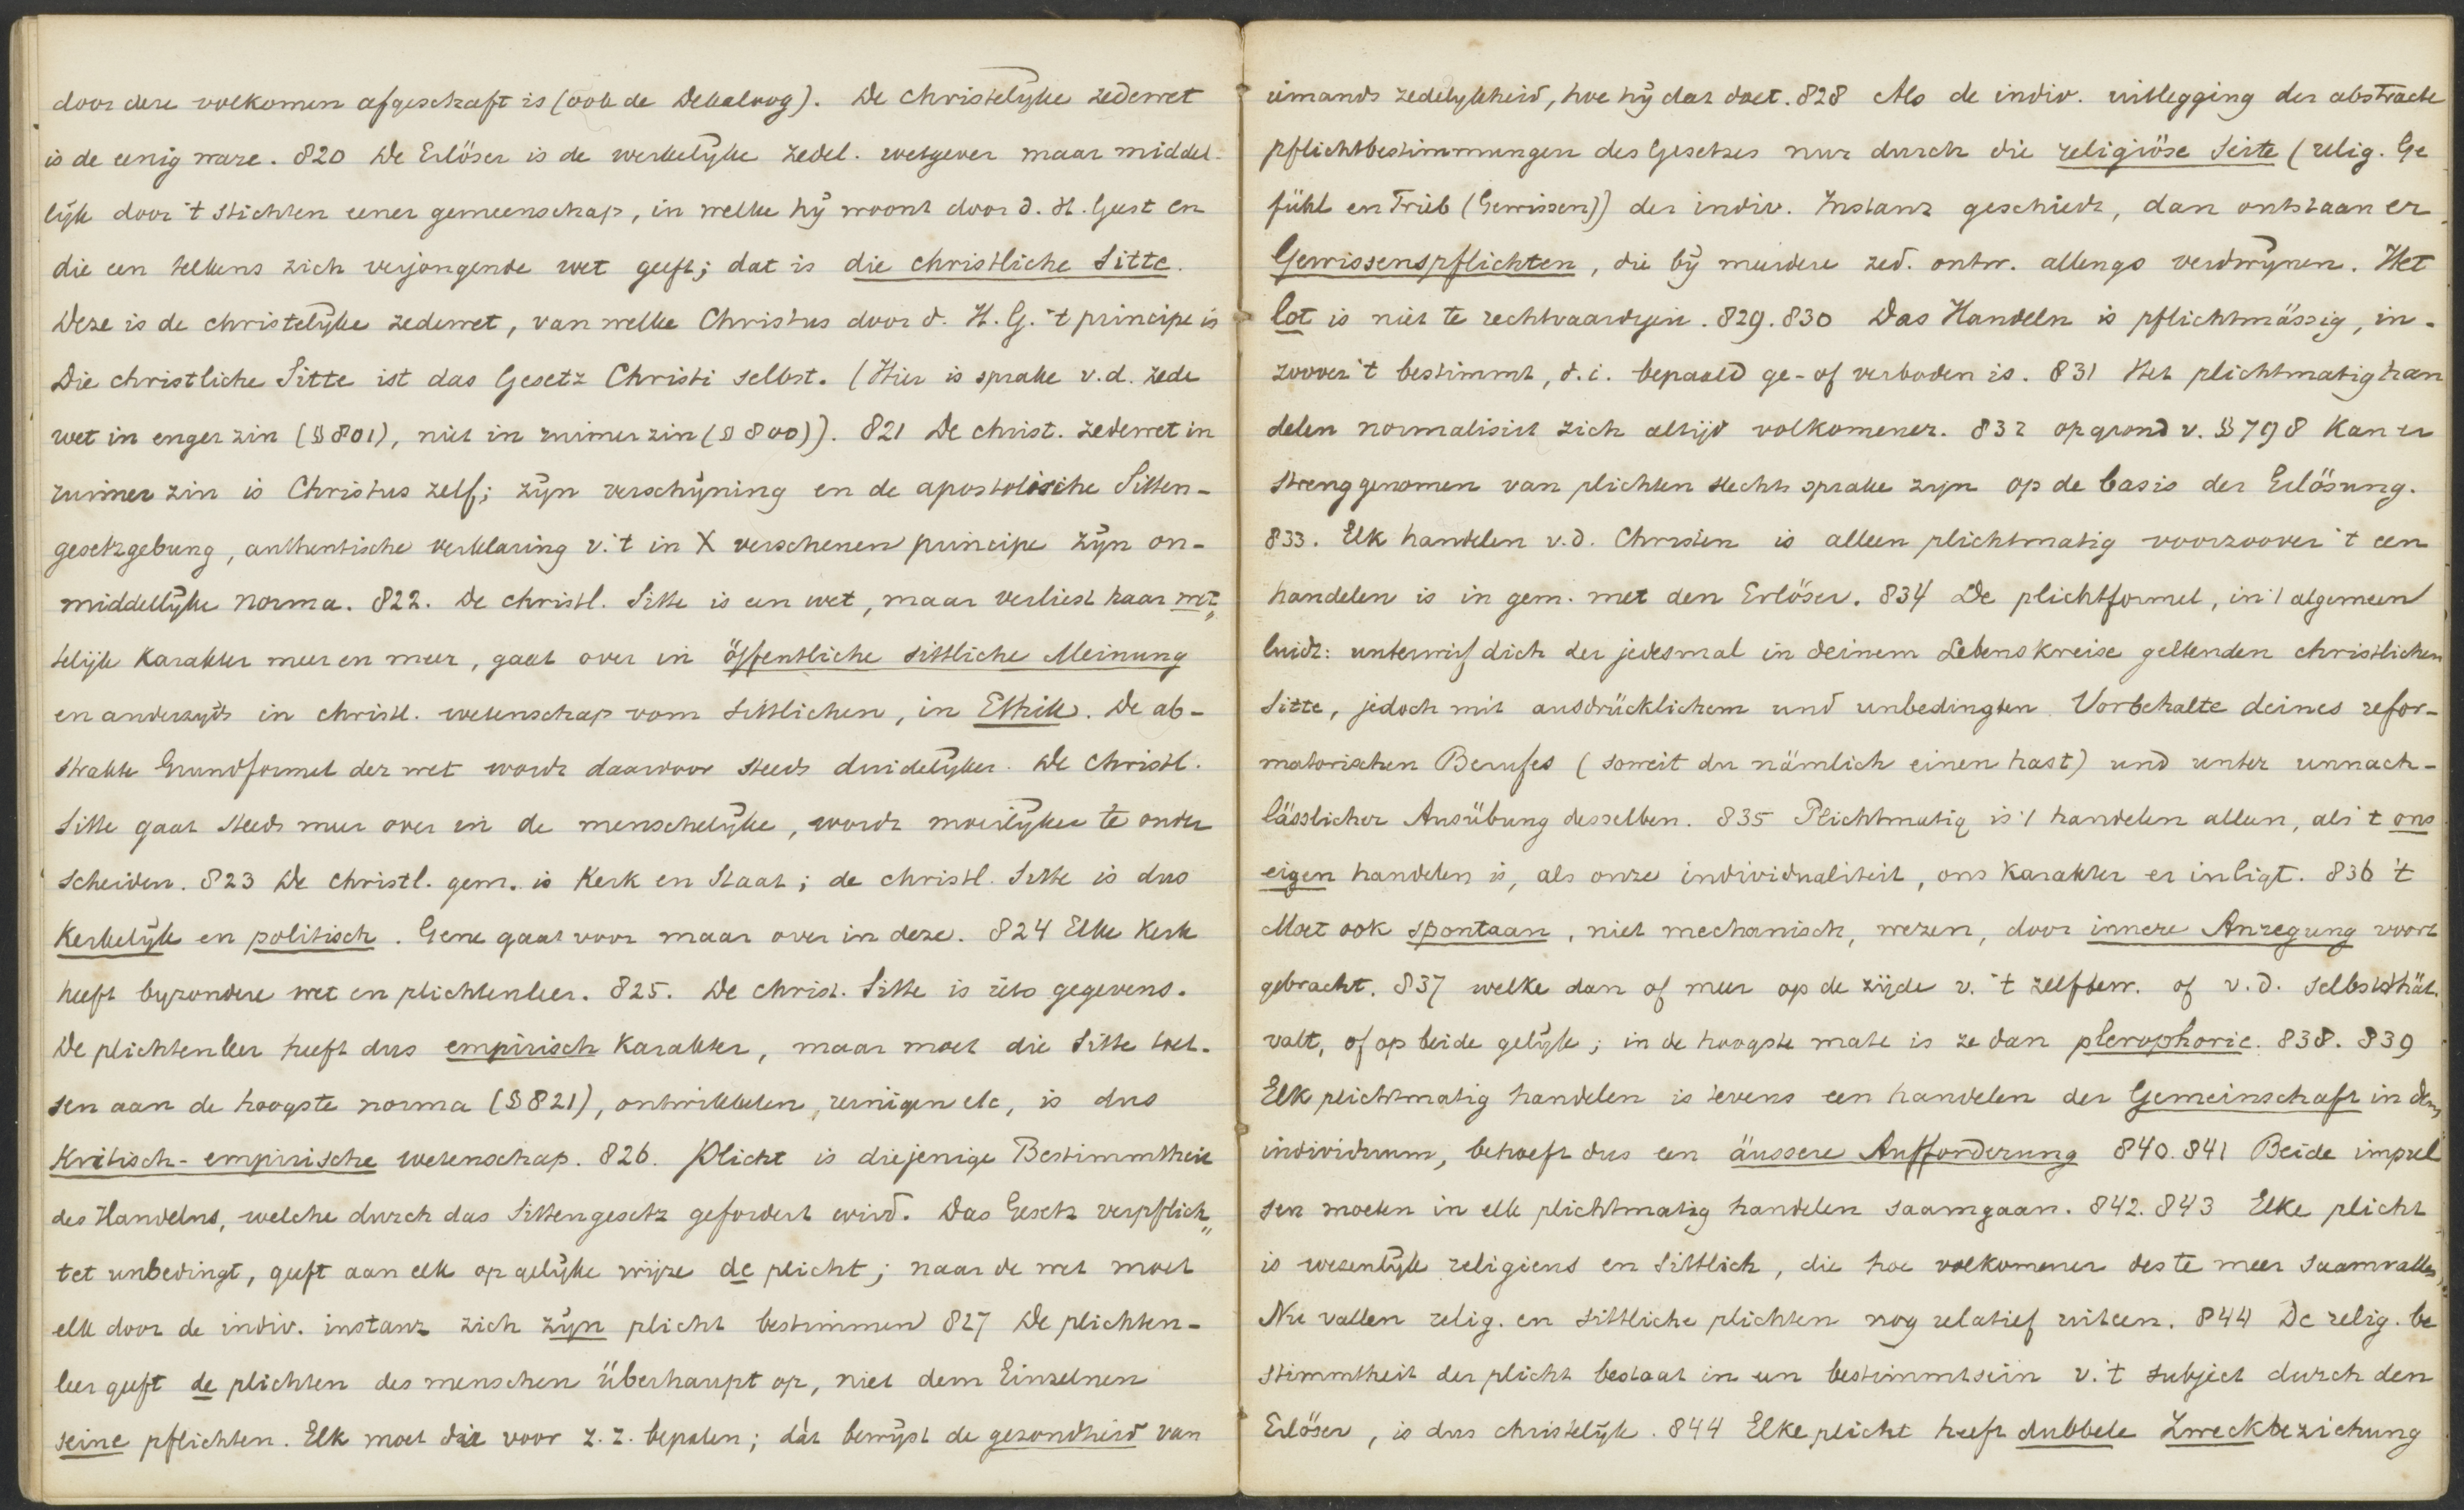 door deze volkomen afgeschaft is (ook de Dekaloog). De christelyke zedewet
is de eenig ware. 820 De Erlöser is de werkelyke zedel. wetgever maar middel-
lijk door 't stichten eener gemeenschap, in welke hij woont door d. H. Geest en
die een telkens zich verjongende wet geeft; dat is die christliche Sitte.
Deze is de christelyke zedewet, van welke Christus door d. H. G. 't principe is
Die christliche Sitte ist das Gesetz Christi selbst. (Hier is sprake v.d. zede
wet in enger zin (§ 801), niet in ruimer zin (§ 800)). 821 De christ. zedewet in
ruimer zin is Christus zelf; zijn verschijning en de apostolische Sitten-
gesetzgebung, authentische verklaring v. 't in X verschenen principe zijn on-
middellijke norma. 822. De christl. Sitte is een wet, maar verliest haar wet,,
telijk karakter meer en meer, gaat over in öffentliche sittliche Meinung
en anderzyds in christl. wetenschap vom Sittlichen, in Ethik. De ab-
strakte Grundformel der wet wordt daardoor steeds duidelyker. De christl.
Sitte gaat steeds meer over in de menschelyke, wordt moeilyker te onder
scheiden. 823 De christl. gem. is Kerk en Staat; de christl. Sitte is dus
Kerkelijk en politisch. Gene gaat voor maar over in deze. 824 Elke Kerk
heeft byzondere wet en plichtenleer. 825. De christ. Sitte is iets gegevens.
De plichtenleer heeft dus empirisch karakter, maar moet die Sitte toet-
sen aan de hoogste norma (§ 821), ontwikkelen, reinigen etc, is dus
Kritisch-empirische wetenschap. 826. Plicht is diejenige Bestimmtheit
des Handelns, welche durch das Sittengesetz gefordert wird. Das Gesetz verpflich,,
tet unbedingt, geeft aan elk op gelijke wijze de plicht; naar de wet moet
elk door de indiv. instanz zich zijn plicht bestimmen 827 De plichten-
leer geeft de plichten des menschen überhaupt op, niet dem Einzelnen
seine pflichten. Elk moet die voor z. z. bepalen; dàt bewyst de gezondheid van
iemands zedelykheid, hoe hij dat doet. 828 Als de indiv. uitlegging der abstracte
pflichtbestimmungen des Gesetzes nur durch die religiöse Seite (relig. Ge
fühl en Trieb (Gewissen)) der indiv. Instanz geschiedt, dan ontstaan er
Gewissenspflichten, die bij meerdere zed. ontw. allengs verdwijnen. Het
lot is niet te rechtvaardigen. 829. 830 Das Handeln is pflichtmässig, in-
zoover 't bestimmt, d. i. bepaald ge- of verboden is. 831 Het plichtmatig han
delen normalisirt zich altijd volkomener. 832 op grond v. § 798 kan er
streng genomen van plichten slechts sprake zijn op de basis der Erlösung.
833. Elk handelen v. d. Christen is alleen plichtmatig voorzoover 't een
handelen is in gem. met den Erlöser. 834 De plichtformel, in 't algemeen
luidt: unterwirf dich der jedesmal in deinem Lebenskreise geltenden christlichen
Sitte, jedoch mit ausdrücklichem und unbedingten Vorbehalte deines refor-
matorischen Berufes (soweit du nämlich einen hast) und unter unnach-
lässlicher Ausübung desselben. 835 Plichtmatig is 't handelen alleen, als 't ons
eigen handelen is, als onze individualiteit, ons karakter er in ligt. 836 't
Moet ook spontaan, niet mechanisch, wezen, door innere Anregung voort
gebracht. 837 welke dan of meer op de zijde v. 't zelfbew. of v. d. Selbstthät.
valt, of op beide gelijk; in de hoogste mate is ze dan plerophorie. 838. 839
Elk plichtmatig handelen is tevens een handelen der Gemeinschaft in den
individuum, behoeft dus een äussere Aufforderung 840. 841 Beide impul
sen moeten in elk plichtmatig handelen saamgaan. 842. 843 Elke plicht
is wezenlyk religieus en sittlich, die hoe volkomener des te meer saamvallen,
Nu vallen relig. en sittliche plichten nog relatief uiteen. 844 De relig. be
stimmtheit der plicht bestaat in een bestimmtsein v. 't subject durch den
Erlöser, is dus christelijk. 844 Elke plicht heeft dubbele Zweckbeziehung